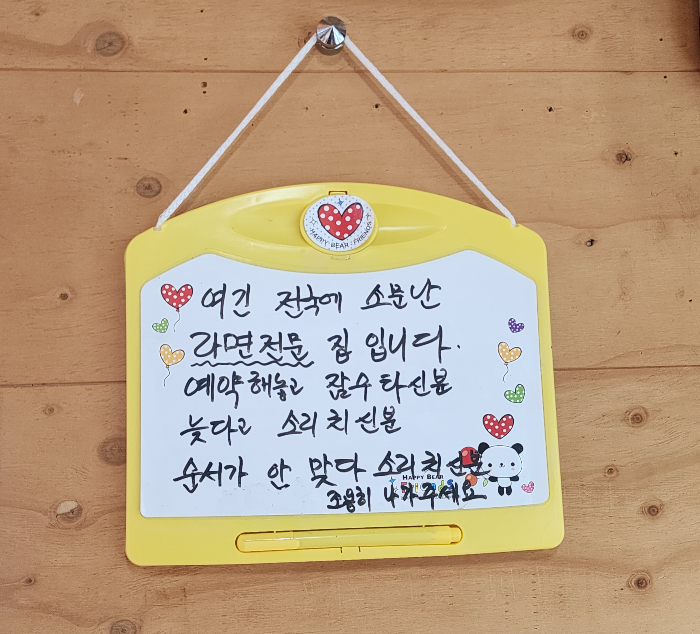 HAPPY BEAR : FRIENDS
여긴 전국에 소문난
라면전문 집 입니다.
예약해놓고 잠수타신분
늦다고 소리치신분
순서가 안 맞다 소리치신분
HAPPY BEAR
조용히 나가주세요